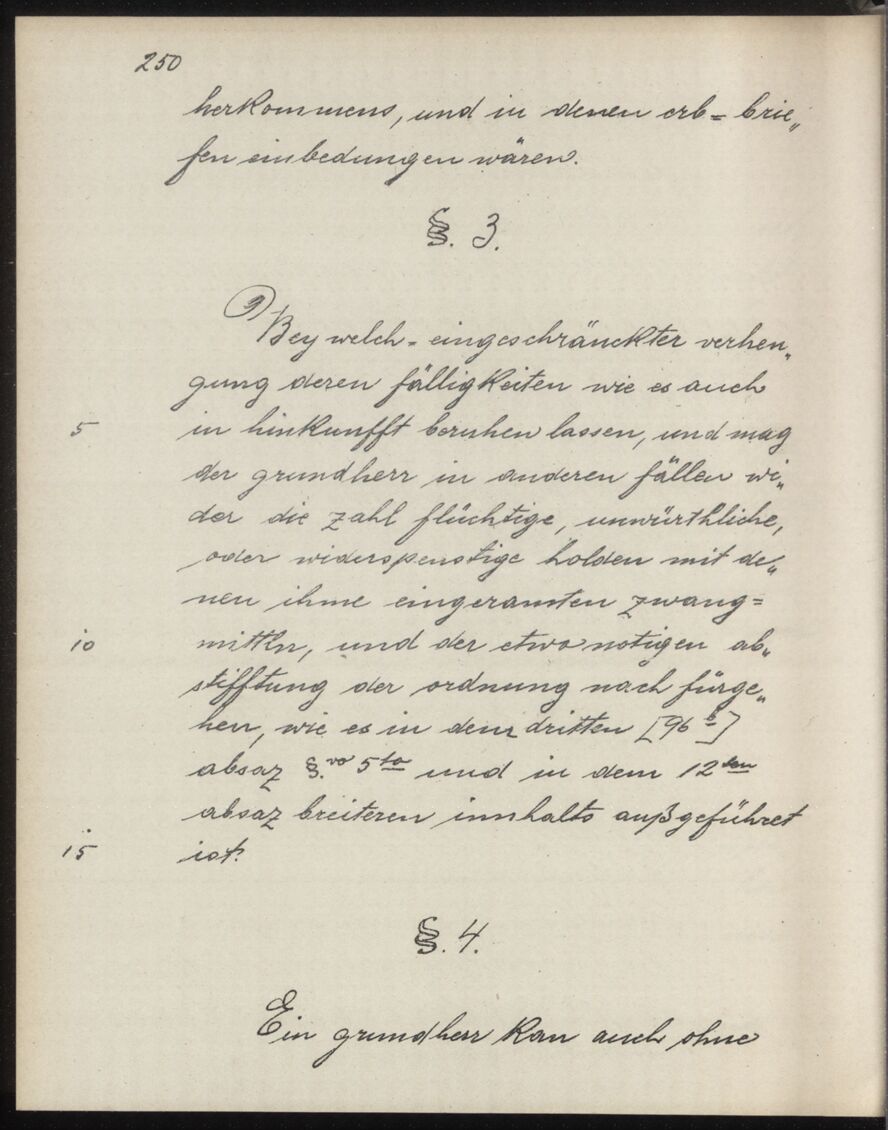 250
herkommens, und in denen erb= brie„
fen einbedungen wären.
§. 3.
Bey welch-eingeschränckter verhen„
gung deren fälligkeiten wie es auch
5 in hinkunfft beruhen lassen, und mag
der grundherr in anderen fällen wi„
der die zahl flüchtige, unwürthliche,
oder widerspenstige holden mit de„
nen ihme eingeramten zwang=
10 mittln, und der etwo notigen ab„
stifftung der ordnung nach fürge„
hen, wie es in dem dritten [96 b]
absaz §.vo 5to und in dem 12ten
absaz breiteren innhalts außgeführet
15 ist.
§. 4.
Ein grundherr kan auch ohne